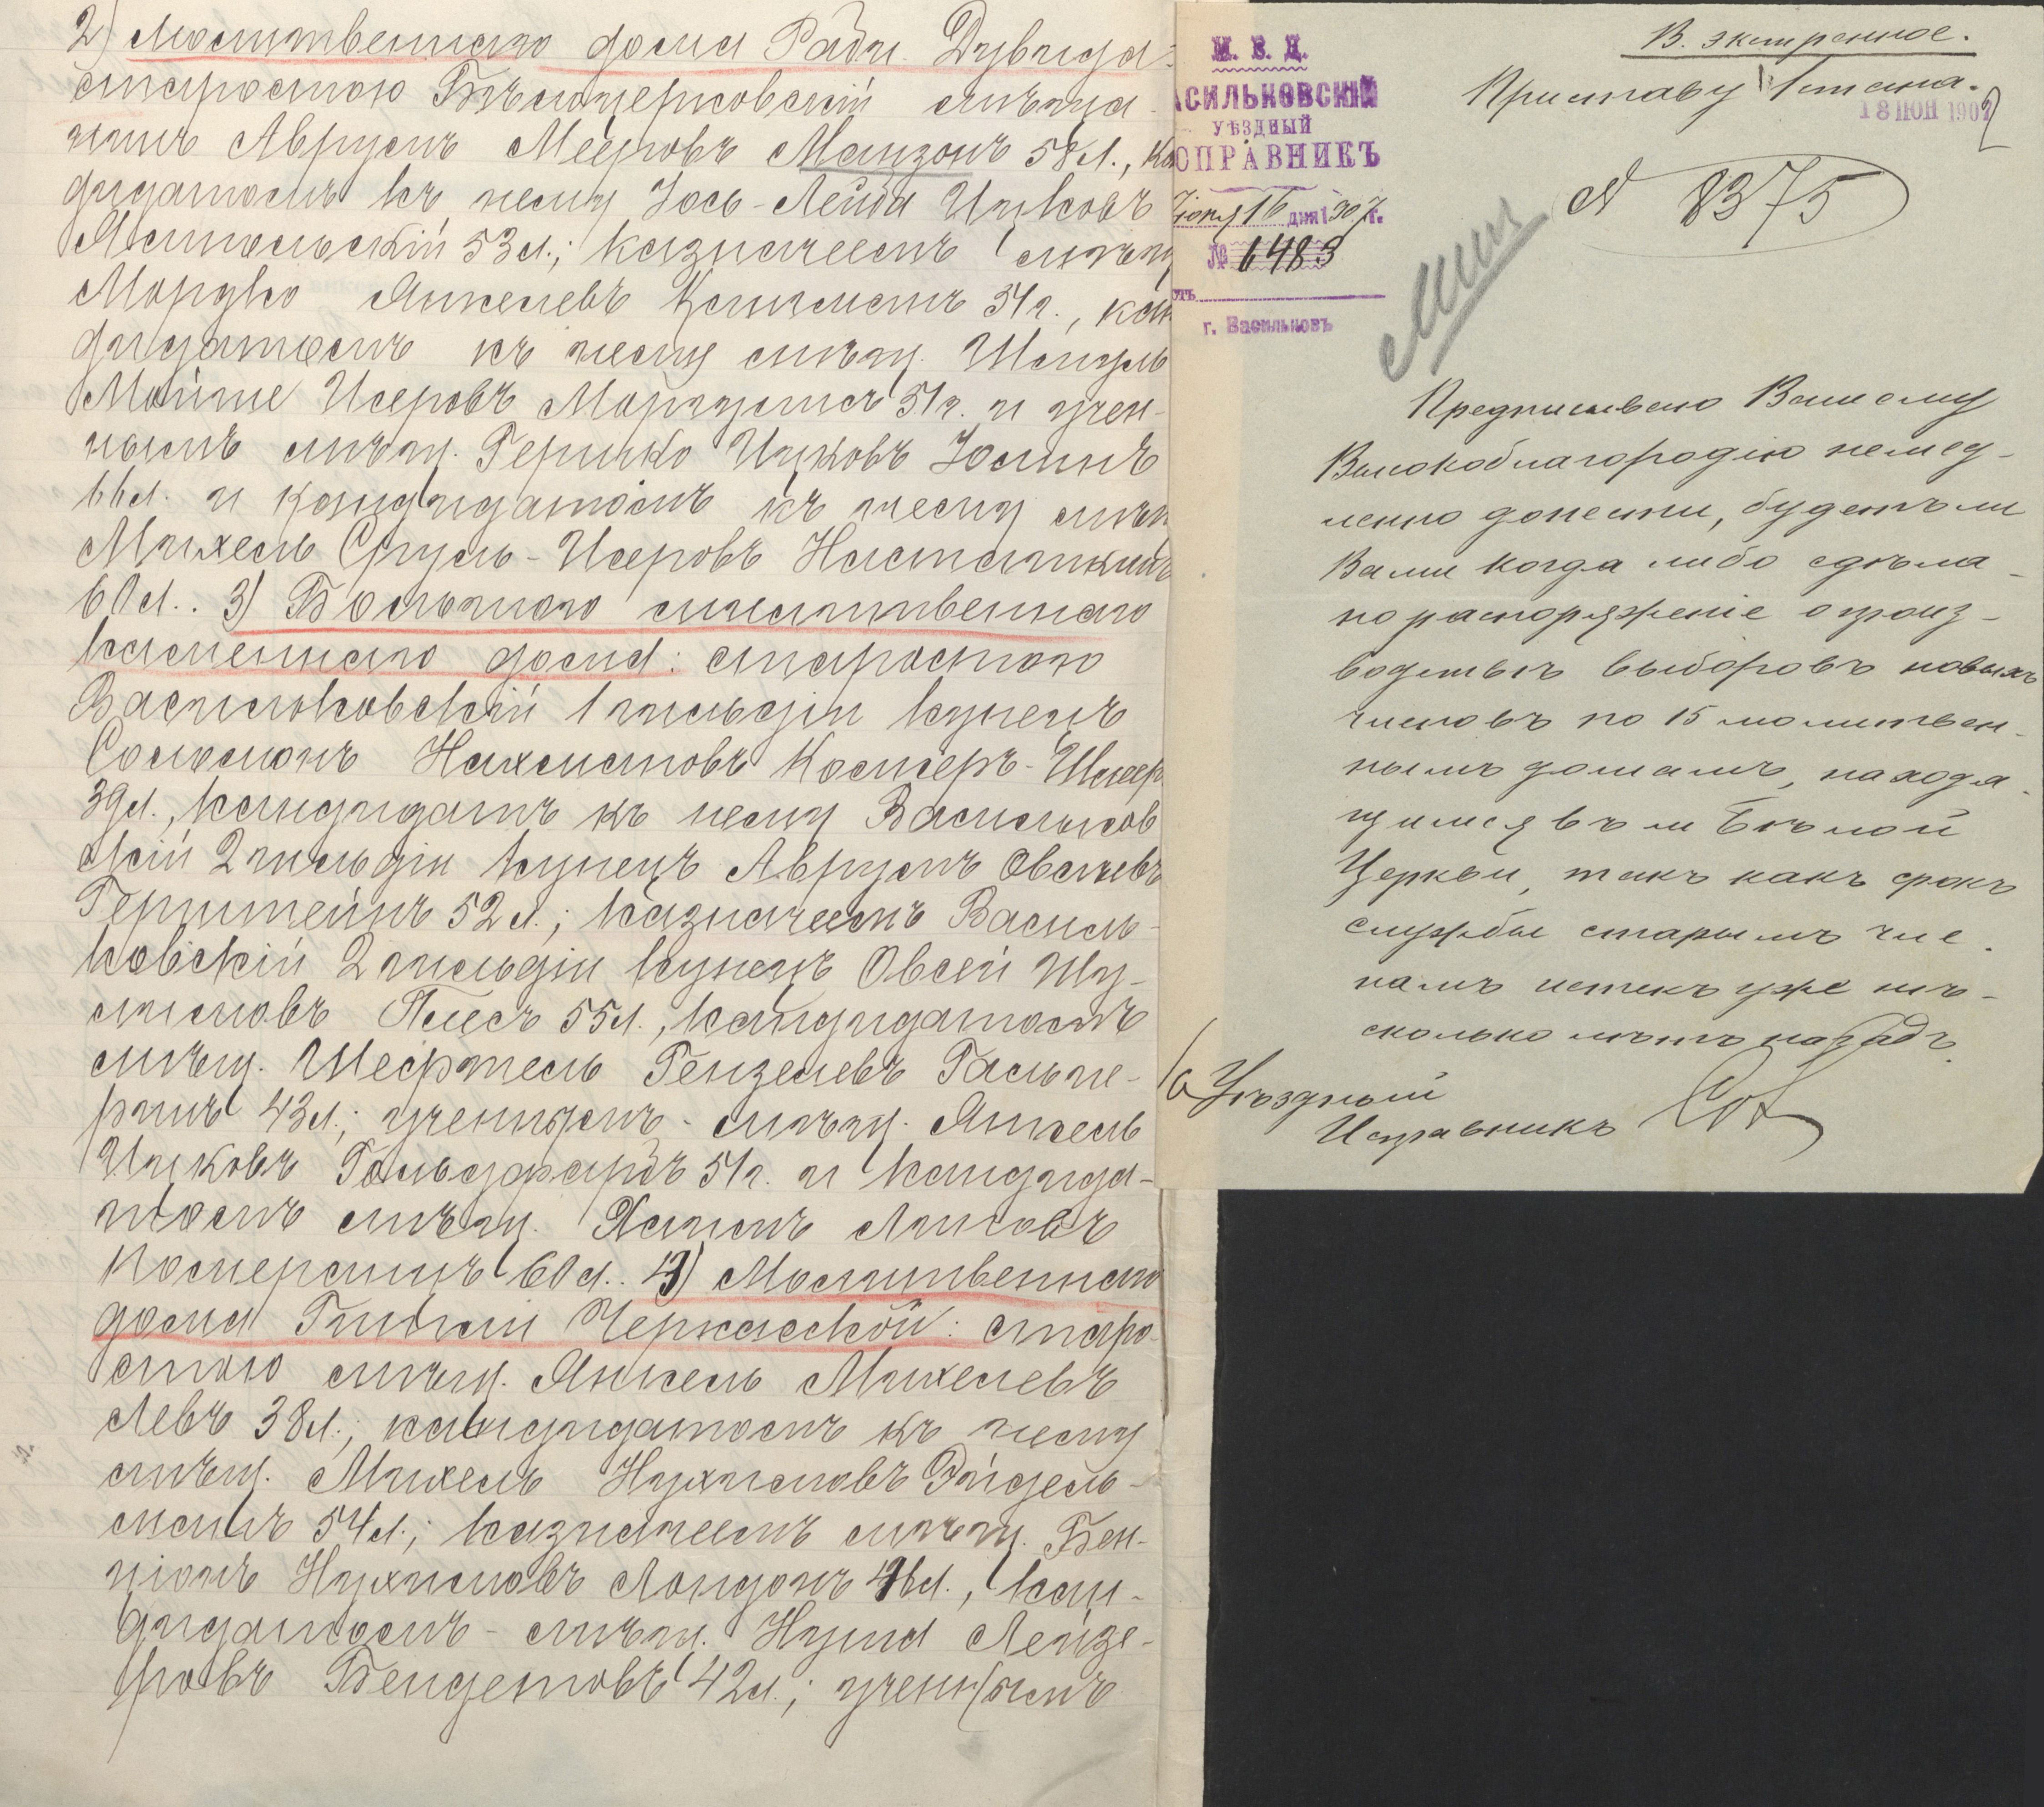 2) Молитвеннаго дома Раби Дувида:
старостою Бѣлоцерковскій мѣща-
нинъ Аврумъ Мееровъ Манзонъ 58 л., кан
дидатомъ къ нему Іось-Лейба Ицковъ
Ямпольскій 53 л.; казначеемъ мѣщ
Мордко Янкелевъ 51 г., кан
дидатомъ къ нему мѣщ. Шмуль
Мойше Исеровъ 51 г. и учен-
нымъ мѣщ. Гершко Ицковъ
66 л. и кандидатомъ къ нему мѣщ
Михель Сруль-Исеровъ
60 л.. 3) Большого молитвеннаго
каменнаго дома: старостою
Васильковскій 1 гильдіи купецъ
Соломонъ Нахмановъ
39 л., кандидатъ къ нему Васильков
скій 2 гильдіи купецъ Аврумъ Овсеевъ
Гернштейнъ 52 л.; казначеемъ Василь-
ковскій 2 гильдіи купецъ Овсей Шу-
лимовъ 55 л., кандидатомъ
мѣщ. Шефтель Гензелевъ Гальпе-
ринъ 43 л.; ученымъ - мѣщ. Янкель
Ицковъ Гольдфарбъ 51 г. и кандида-
томъ мѣщ. Хаимъ
60 л.. 4) Молитвеннаго
дома Гитли Черкасской: старо-
стою мѣщ. Янкель Михелевъ
Левъ 38 л.; кандидатомъ къ нему
мѣщ. Михель Нухимовъ Эйдель-
манъ 54 л.; казначеемъ мѣщ. Бен-
ціонъ Нухимовъ Лондонъ 46 л., кан-
дидатомъ - мѣщ. Нухим Лейзе-
ровъ Бендетовъ 42 л.; ученымъ
М. В. Д.
АСИЛЬКОВСКІЙ
УѢЗДНЫЙ
СПРАВНИКЪ
Іюня 16 дня 1907 г.
№ 6483
г. Васильковъ
В. экстренное.
Приставу 1 стана.
18 ІЮН 1907
2
№ 8375
Предписываю Вашему
Высокоблагородію немед-
ленно донести, будетъ ли
Вами когда либо сдѣла-
но распоряженіе о произ-
водствѣ выборовъ новыхъ
членовъ по 15 молитвен-
нымъ домамъ, находя-
щимся въ м. Бѣлой
Церкви, такъ какъ срокъ
службы старымъ чле-
намъ истекъ уже нѣ-
сколько лѣтъ назадъ.
Уѣздный
Исправникъ